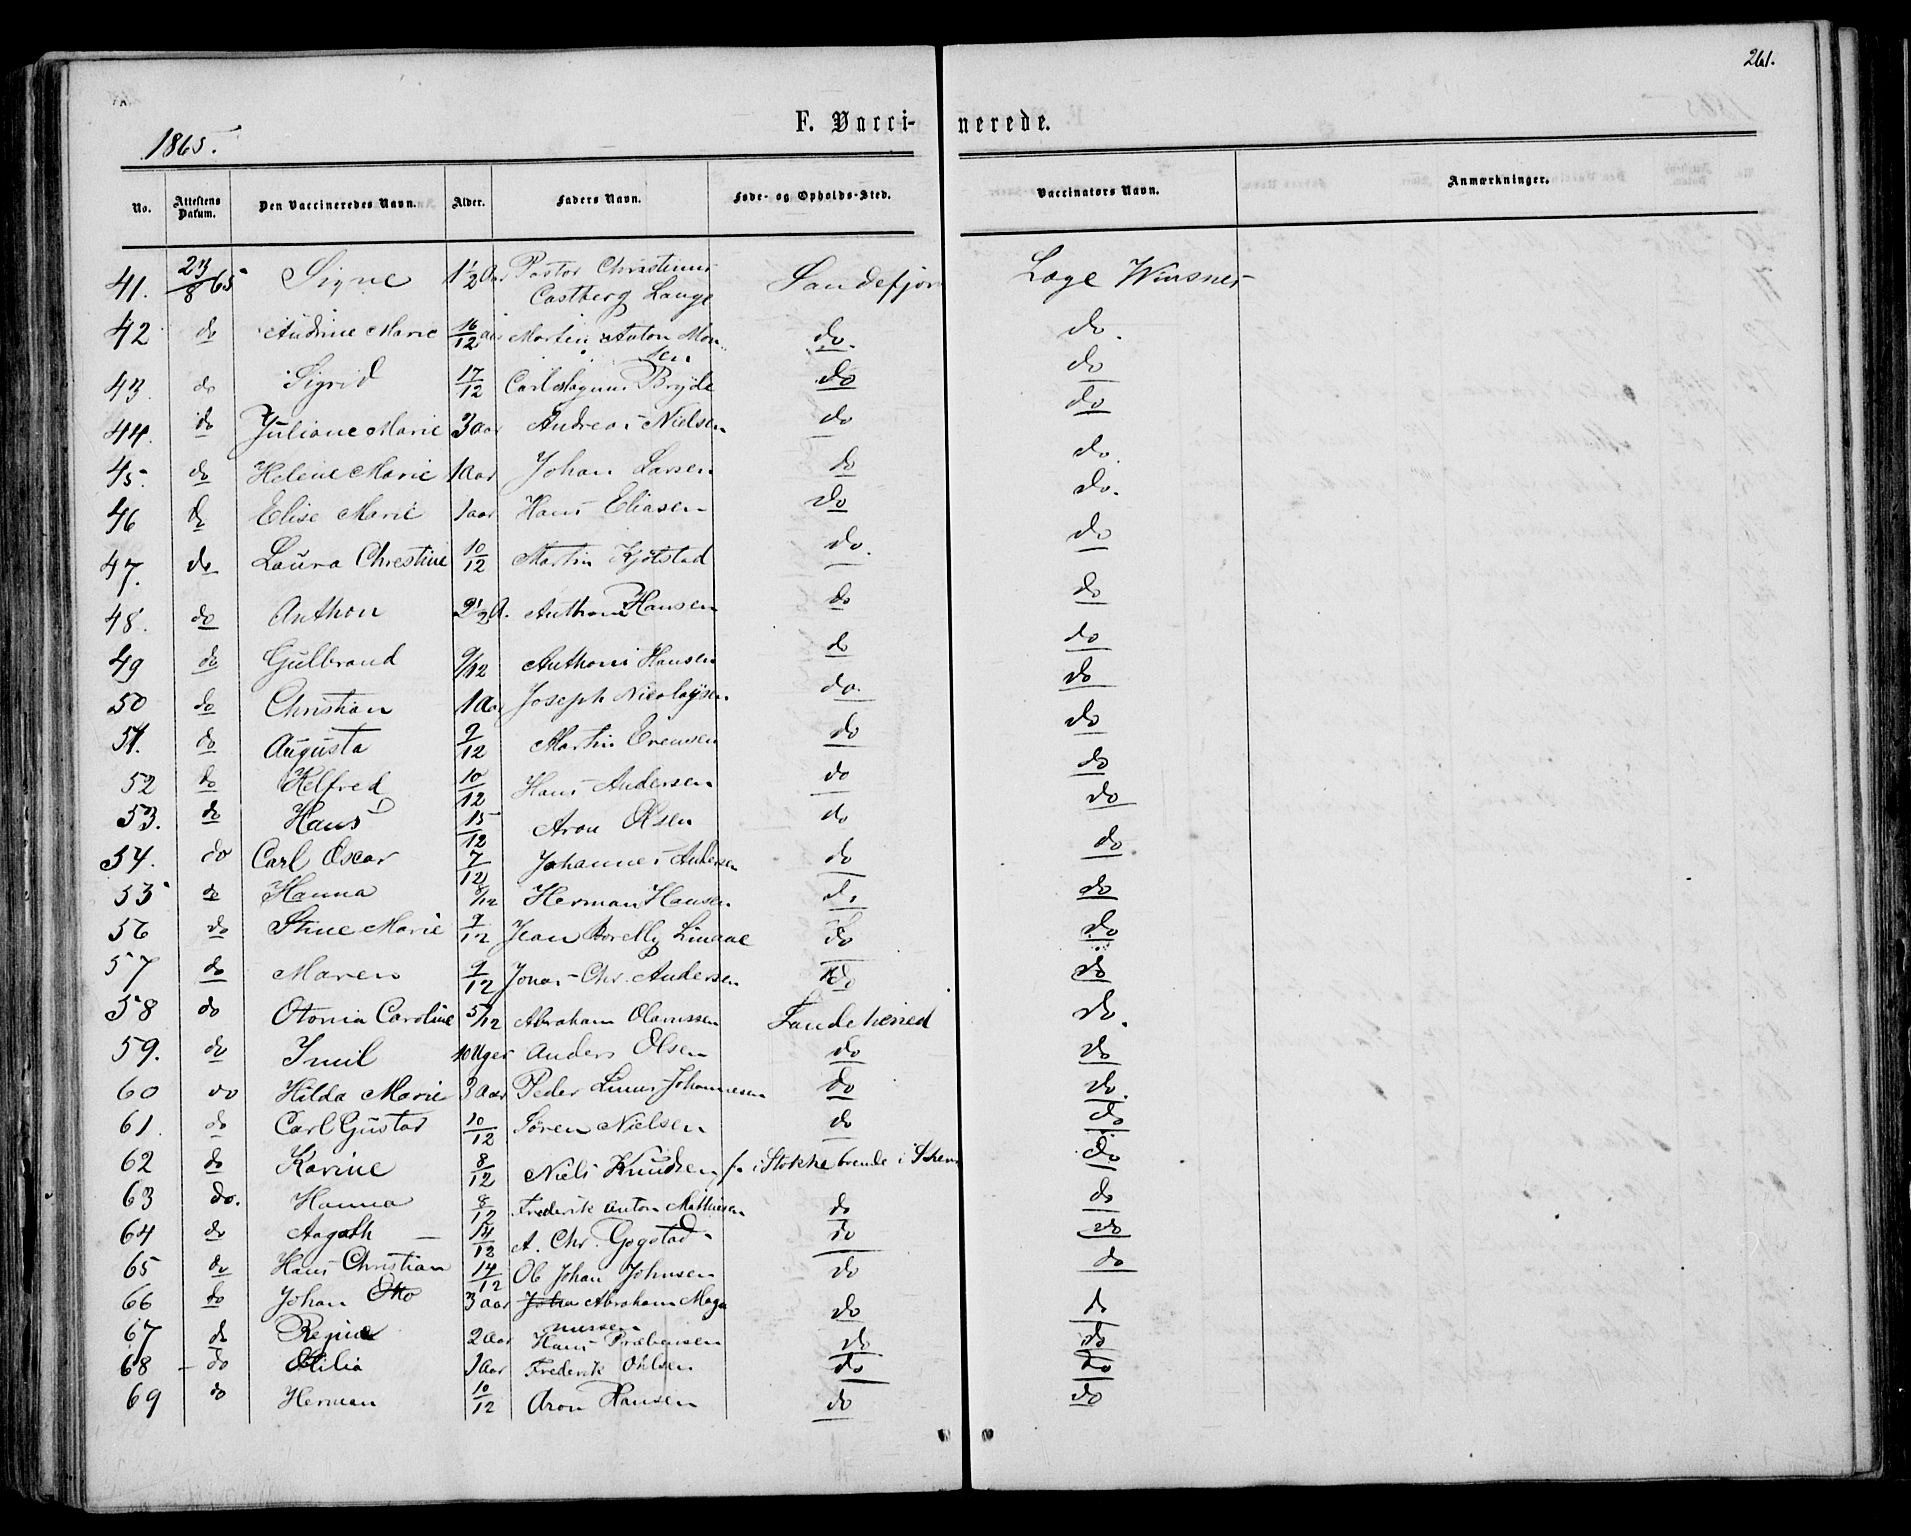 261.
F. Vacci- nerede.
1865.
No. Attestens Datum. Den Vaccineredes Navn. Alder. Faders Navn. Føde- og Opholds-Sted. Vaccinators Navn. Anmærkninger.
41. 23/8 65 Signe 1 1/2 Aar Pastor Christinus Castberg Lange Sandefjor Læge Winsnes
42 do Andrine Marie 16/12 aar Martin Anton Monsen do. do.
43. do Sigrid 17/12 Carl Magnus Bryde do do
44. do Juliane Marie 3 aar Andreas Nielsen do do
45. do Helene Marie 1 aar Johan Larsen do do.
46 do Elise Marie 1 aar Hans Eliasen do do.
47. do Laura Christine 10/12 Martin Kjølstad do. do
48. do Anthon 2 1/2 A. Anthoni Hansen do do
49 do Gulbrand 9/12 Anthoni Hansen do do
50 do Christian 1 Aar Joseph Nicolaysen do. do
51. do Augusta 9/12 Martin Evensen do do
52 do Helfred 10/12 Hans Andersen do do
53. do Hans 15/12 Aron Olsen do do
54. do Carl Oscar 7/12 Johannes Andersen do do
55 do Hanna 8/12 Herman Hansen do do
56 do Stine Marie 9/12 Jean Borelly Linaae do do
57 do Maren 9/12 Jonas Chr. Andersen do do
58 do Otonia Caroline 5/12 Abraham Olavussen Sandeherred do.
59. do Imil 10 Uger Anders Olsen do do
60 do Hilda Marie 3 aar Peder Linus Johannesen do do.
61. do Carl Gustav 10/12 Søren Nielsen do do
62 do Karine 8/12 Niels Knudsen f. i Stokke boende i Sken do
63 do. Hanna 8/12 Frederik Anton Mathiesen do do
64 do Aagoth 14/12 A. Chr. Gogstad do do
65 do Hans Christian 14/12 Ole Johan Johnsen do do
66 do Johan Otto 3 aar Johan Abraham Magnussen do do
67 do Regine 2 aar Hans Præbensen do do
68 - do Otilia 1 aar Frederik Ohlsen do do
69 do Herman 10/12 Aron Hansen do do